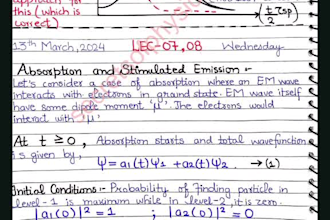 approach for
this (which is
correct)
t >sp
2
13th March, 2024 LEC-07,08 Wednesday
Absorption and Stimulated Emission :-
Let's consider a case of absorption where an EM wave
interacts with electrons in ground state. EM wave itself
have some dipole moment, 'μ'. The electrons would
interact with 'μ'
At t ≥ 0, Absorption starts and total wavefunction
is given by,
Ψ = a₁(t)Ψ₁ + a₂(t)Ψ₂ → (1)
Initial Conditions:- Probability of finding particle in
level-1 is maximum while in level-2, it is zero.
|a₁(0)|² = 1 ; |a₂(0)|² = 0